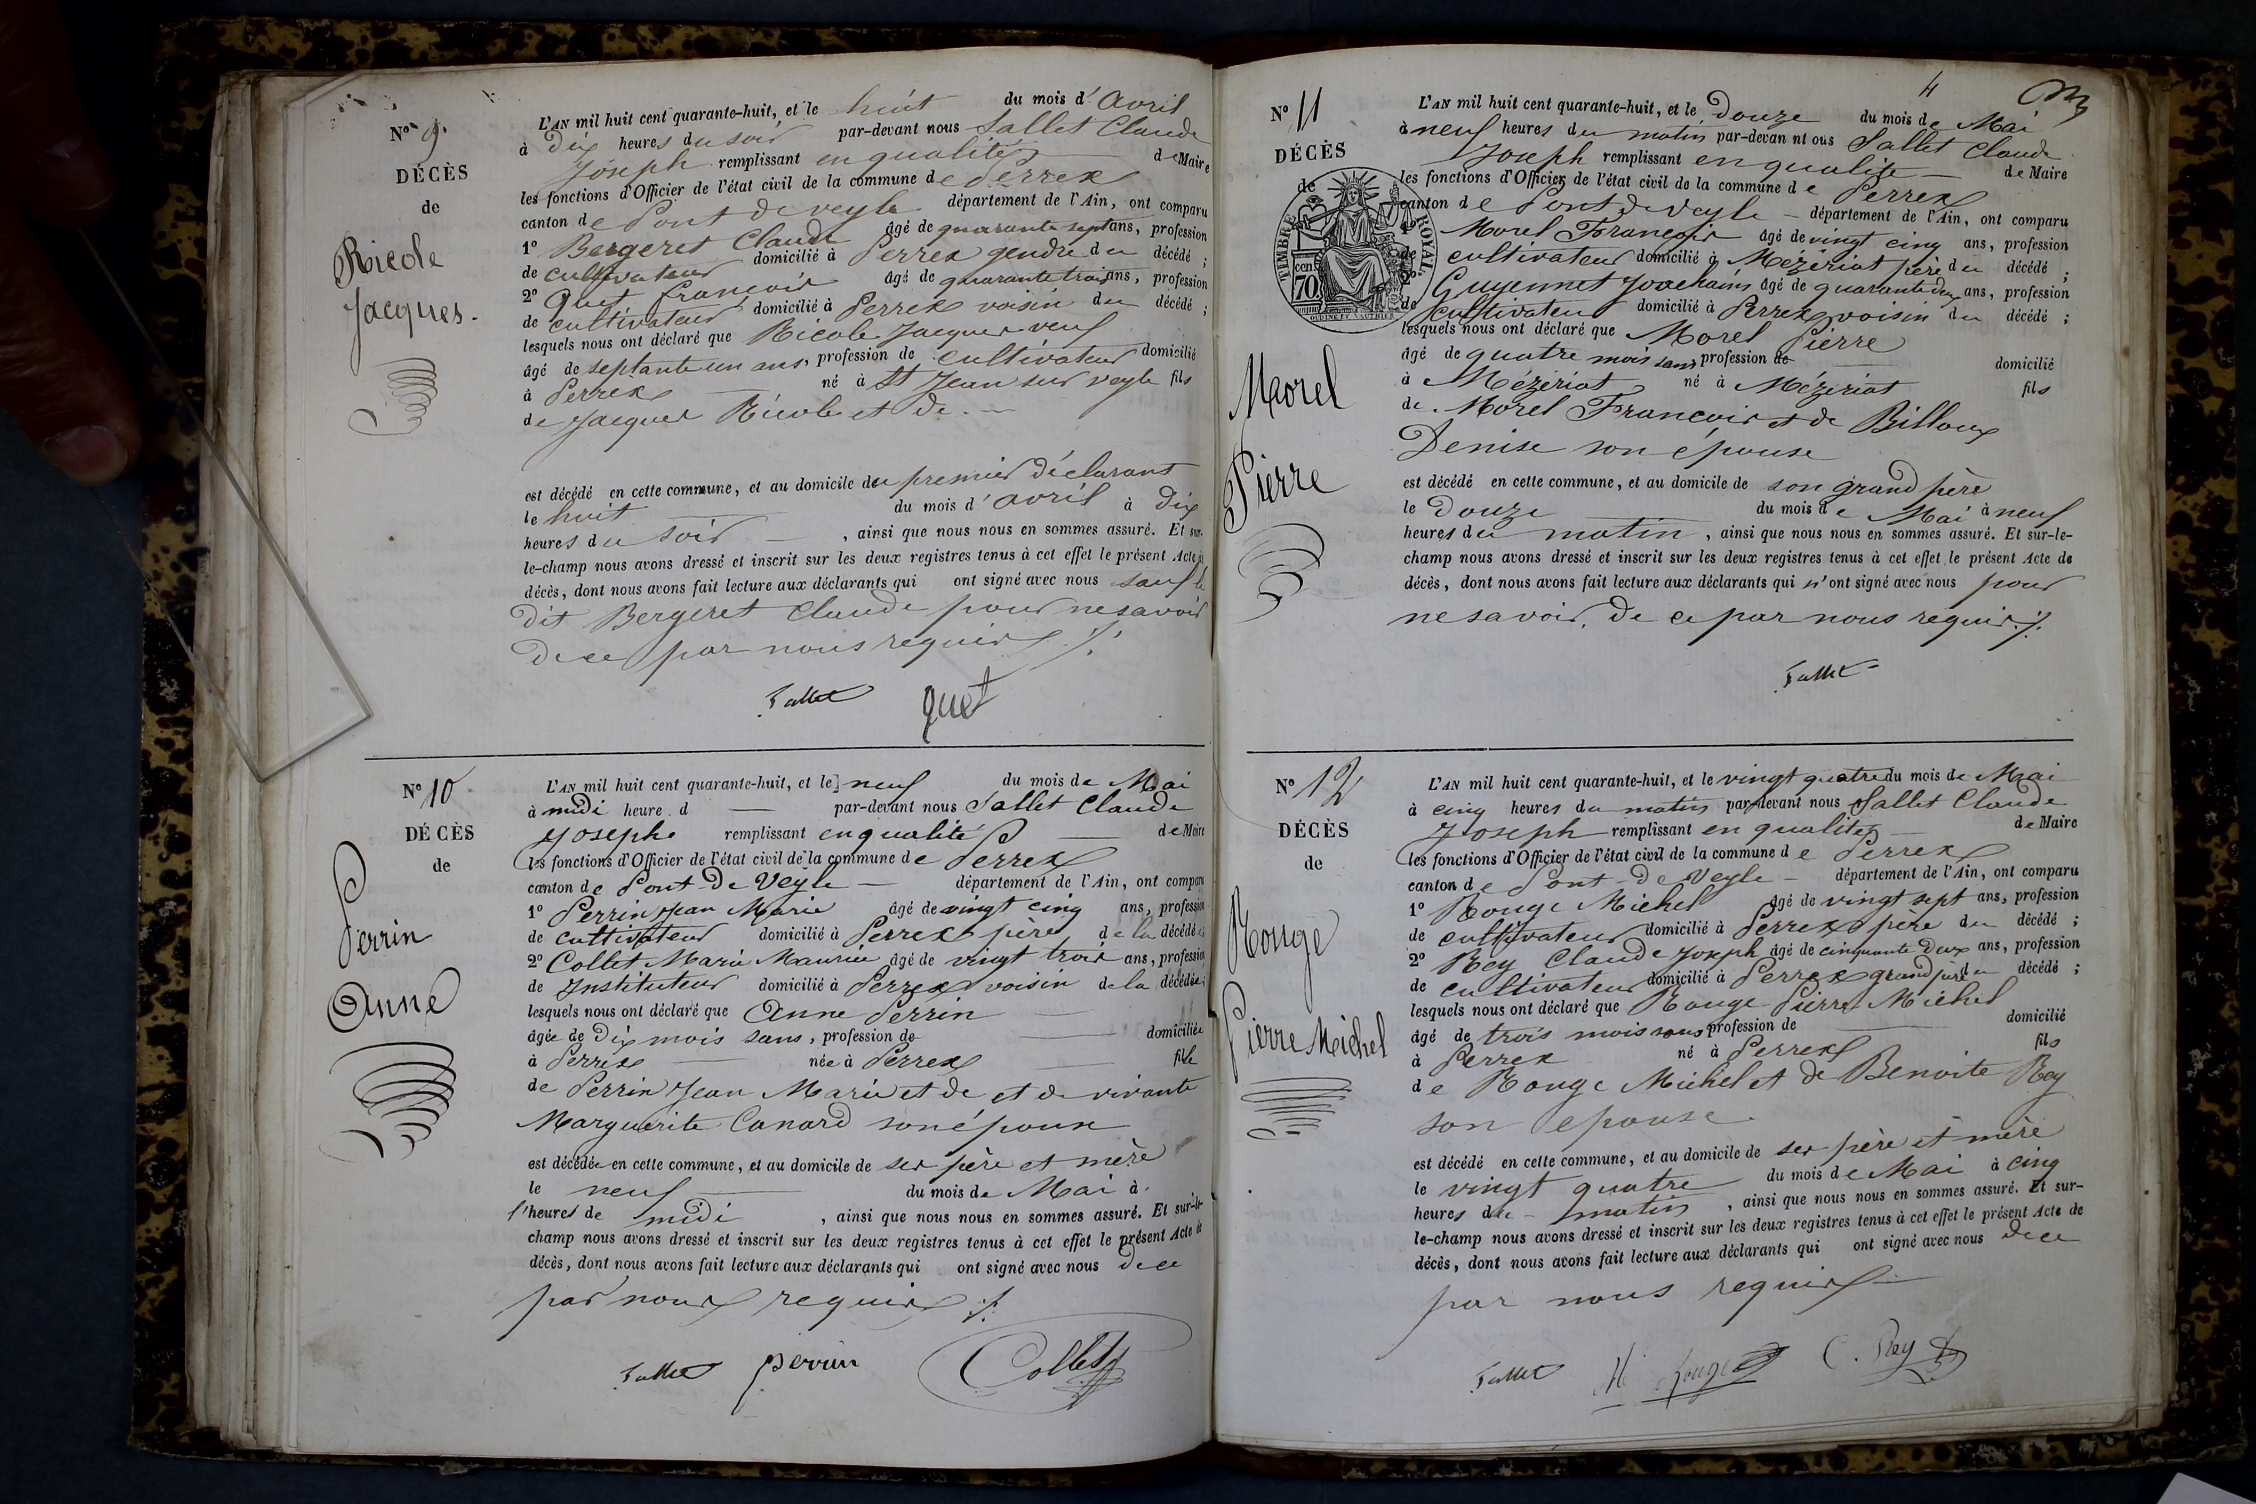 N° 9.
DÉCÈS
de
Ricole
Jacques.
L'AN mil huit cent quarante-huit, et le huit du mois d'Avril
à Dix heures du soir par-devant nous Sallet Claude
Joseph remplissant en qualité de Maire
les fonctions d'Officier de l'état civil de la commune de Perrex
canton de Pont de veyle département de l'Ain, ont comparu
1° Bergeret Claude âgé de quarante sept ans, profession
de cultivateur domicilié à Perrex gendre du décédé ;
2° Quet françois âgé de quarante trois ans, profession
de cultivateur domicilié à Perrex voisin du décédé ;
lesquels nous ont déclaré que Ricole Jacques veuf
âgé de septante un ans, profession de cultivateur domicilié
à Perrex né à St Jean sur veyle fils
de Jacques Ricole et de
est décédé en cette commune, et au domicile du premier déclarant
le huit du mois d'avril à Dix
heures du soir , ainsi que nous nous en sommes assuré. Et sur-
le-champ nous avons dressé et inscrit sur les deux registres tenus à cet effet le présent Acte de
décès, dont nous avons fait lecture aux déclarants qui ont signé avec nous sauf le
dit Bergeret Claude pour ne savoir
de ce par nous requis ./.
Sallet quet
N° 10
DÉCÈS
de
Perrin
Anne
L'AN mil huit cent quarante-huit, et le neuf du mois de Mai
à midi heure d par-devant nous Sallet Claude
Joseph remplissant en qualité de Maire
les fonctions d'Officier de l'état civil de la commune de Perrex
canton de Pont De Veyle département de l'Ain, ont comparu
1° Perrin Jean Marie âgé de vingt cinq ans, profession
de cultivateur domicilié à Perrex père de la décédée
2° Collet Marie Maurice âgé de vingt trois ans, profession
de Instituteur domicilié à Perrex voisin de la décédée ;
lesquels nous ont déclaré que Anne Perrin
âgée de Dix mois sans, profession de domiciliée
à Perrex née à Perrex fille
de Perrin Jean Marie et de et de vivante
Marguerite Canard son épouse
est décédée en cette commune, et au domicile de ses père et mère
le neuf du mois de Mai à
l'heures de midi , ainsi que nous nous en sommes assuré. Et sur-le-
champ nous avons dressé et inscrit sur les deux registres tenus à cet effet le présent Acte de
décès, dont nous avons fait lecture aux déclarants qui ont signé avec nous de ce
par nous requis ./.
Sallet perrin Collet
4
N° 11
DÉCÈS
de
TIMBRE ROYAL
70 cen.
Morel
Pierre
L'AN mil huit cent quarante-huit, et le Douze du mois de Mai
à neuf heures du matin par-devan nt ous Sallet Claude
Joseph remplissant en qualité de Maire
les fonctions d'Officier de l'état civil de la commune de Perrex
canton de Pont de Veyle département de l'Ain, ont comparu
1° Morel François âgé de vingt cinq ans, profession
de cultivateur domicilié à Mézériat père du décédé ;
2° Guyennet Joachaim âgé de quarante deux ans, profession
de cultivateur domicilié à Perrex voisin du décédé ;
lesquels nous ont déclaré que Morel Pierre
âgé de quatre mois sans profession de domicilié
à Mézériat né à Mézériat fils
de Morel François et de Billoux
Denise son épouse
est décédé en cette commune, et au domicile de son grand père
le Douze du mois de Mai à neuf
heures du matin , ainsi que nous nous en sommes assuré. Et sur-le-
champ nous avons dressé et inscrit sur les deux registres tenus à cet effet le présent Acte de
décès, dont nous avons fait lecture aux déclarants qui n'ont signé avec nous pour
ne savoir, De ce par nous requis ./.
Sallet
N° 12
DÉCÈS
de
Rouge
Pierre Michel
L'AN mil huit cent quarante-huit, et le vingt quatre du mois de Mai
à cinq heures du matin par-devant nous Sallet Claude
Joseph remplissant en qualité de Maire
les fonctions d'Officier de l'état civil de la commune de Perrex
canton de Pont De Veyle département de l'Ain, ont comparu
1° Rouge Michel âgé de vingt sept ans, profession
de cultivateur domicilié à Perrex père du décédé ;
2° Rey Claude Joseph âgé de cinquante Deux ans, profession
de cultivateur domicilié à Perrex grand père du décédé ;
lesquels nous ont déclaré que Rouge Pierre Michel
âgé de trois mois sans profession de domicilié
à Perrex né à Perrex fils
de Rouge Michel et de Benoite Rey
son épouse
est décédé en cette commune, et au domicile de ses père et mère
le vingt quatre du mois de Mai à cinq
heures du matin , ainsi que nous nous en sommes assuré. Et sur-
le-champ nous avons dressé et inscrit sur les deux registres tenus à cet effet le présent Acte de
décès, dont nous avons fait lecture aux déclarants qui ont signé avec nous de ce
par nous requis
Sallet M Rouge C. Rey